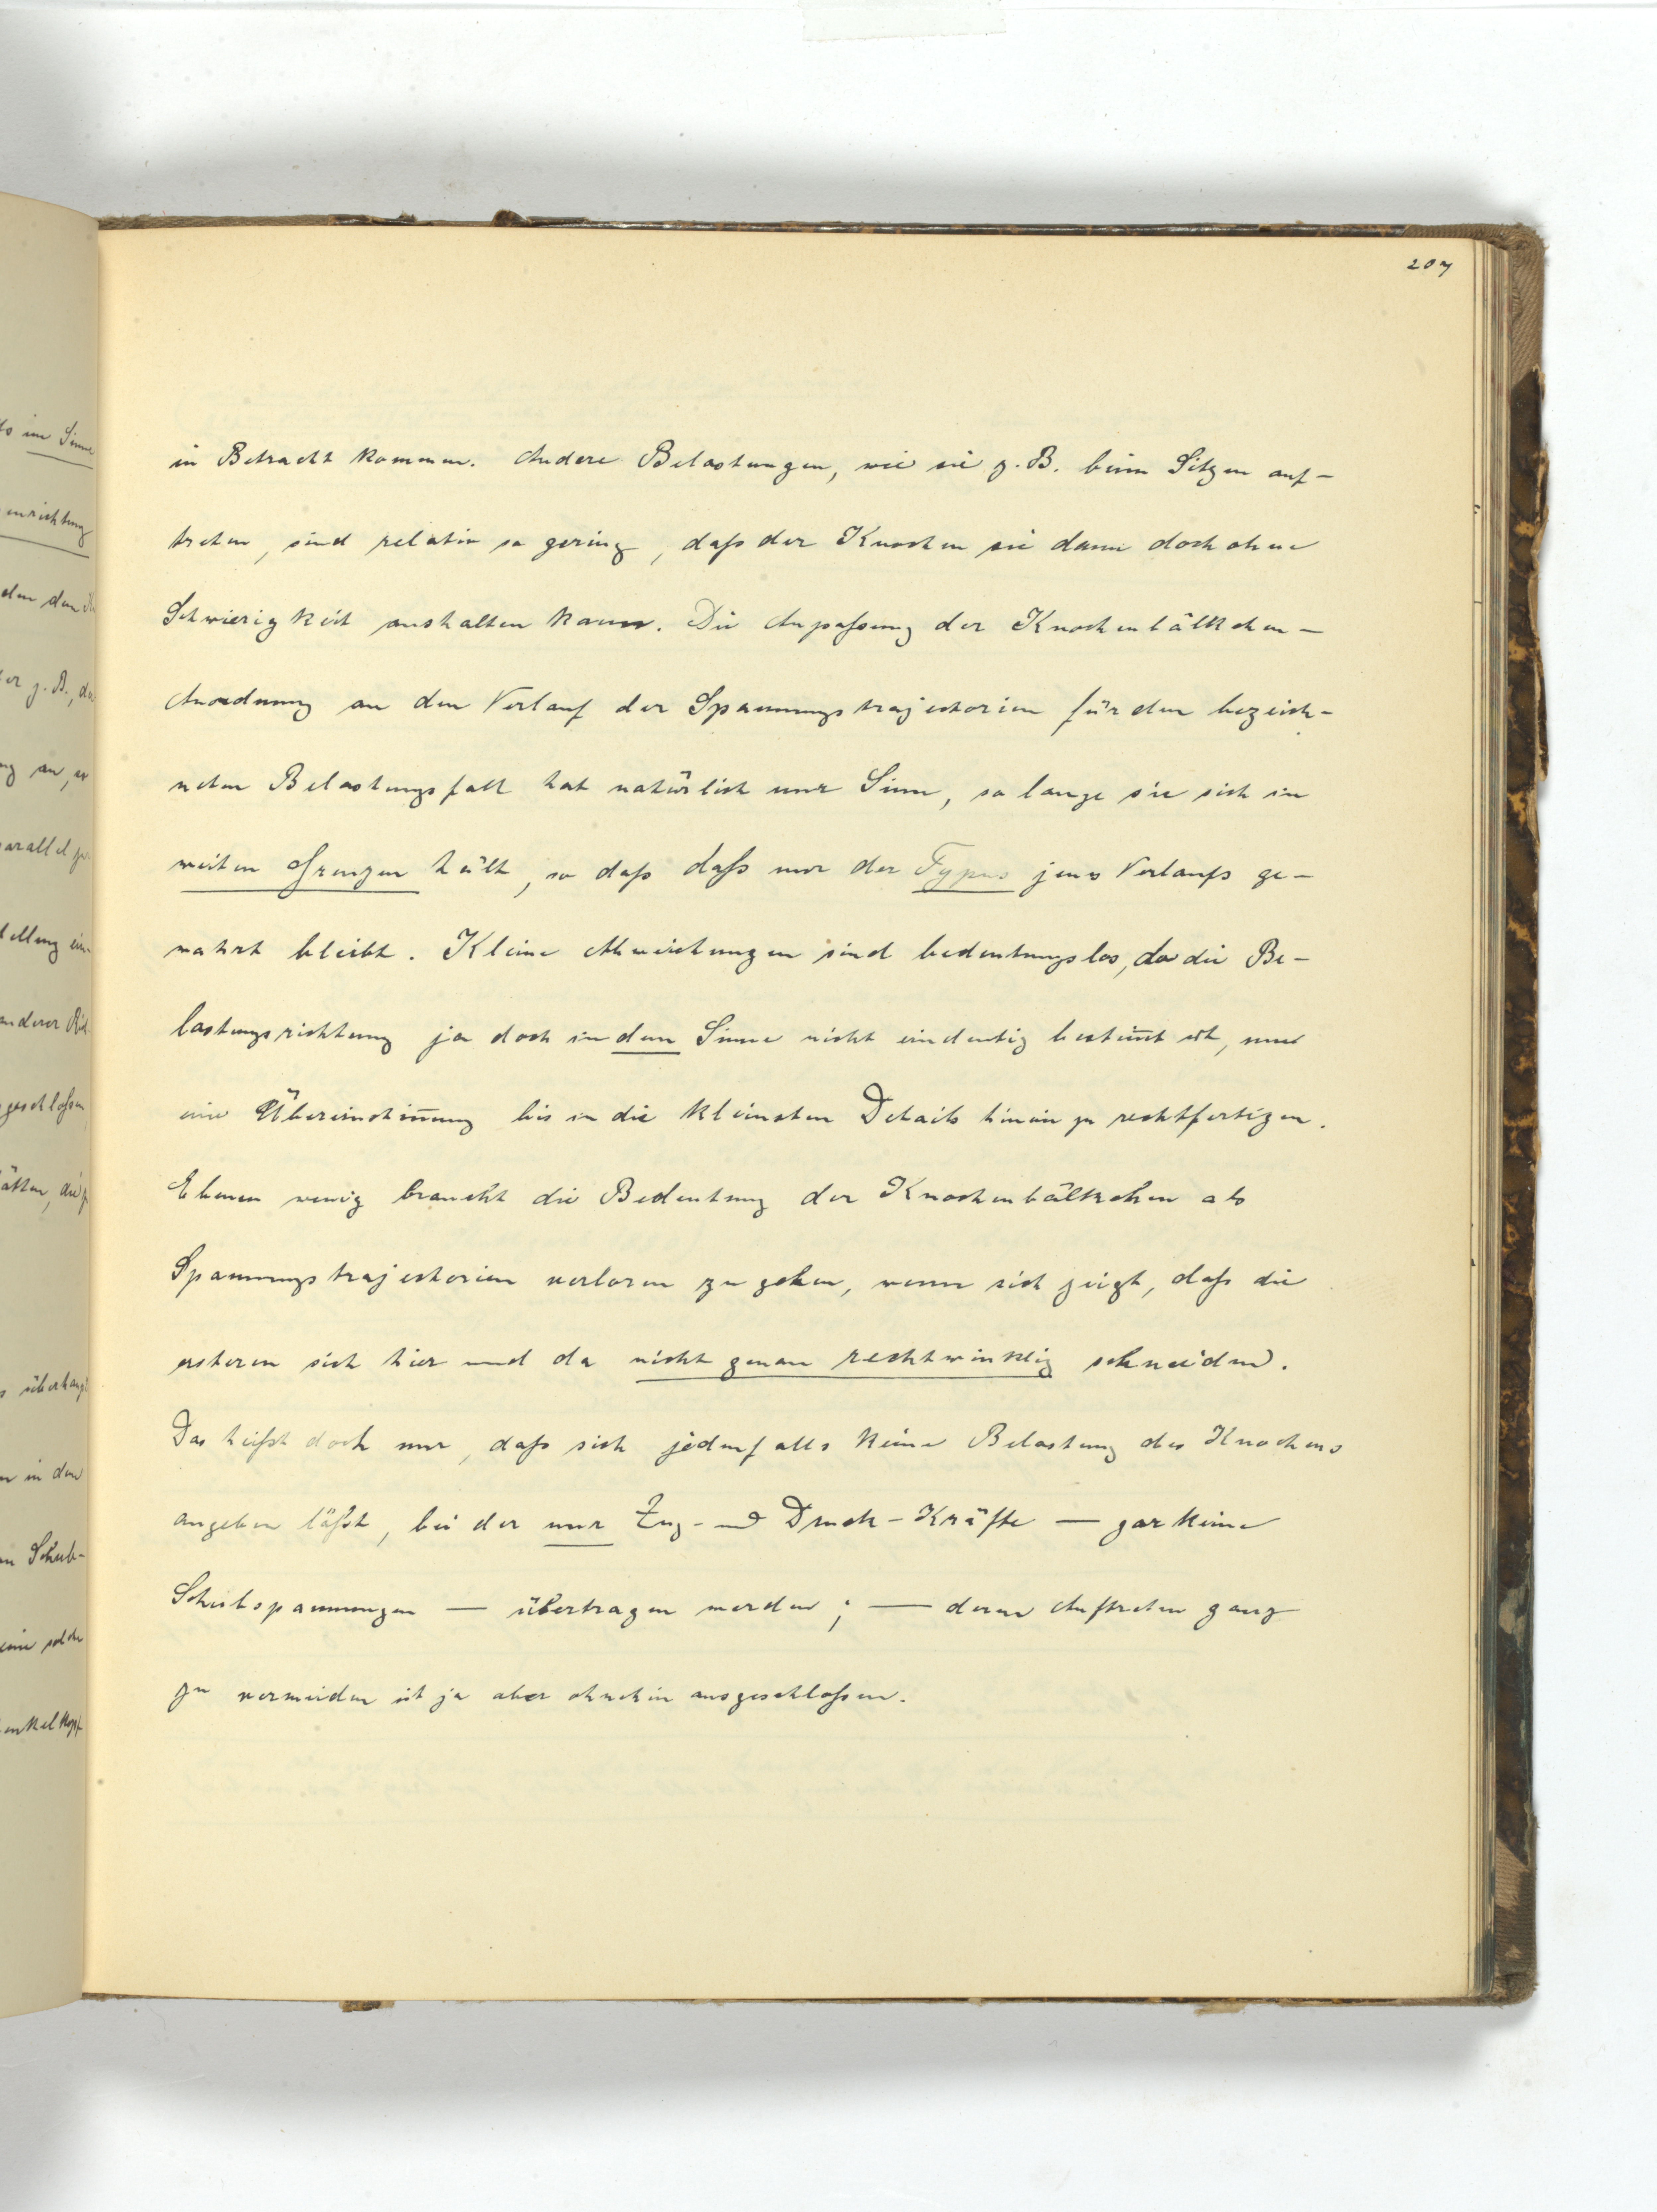 207
in Betracht kommen. Andere Belastungen, wie sie z. B. beim Sitzen auf-
treten, sind relativ so gering, daß der Knochen sie dann doch ohne
Schwierigkeit aushalten kann. Die Anpaßung der Knochenbälkchen-
Anordnung an den Verlauf der Spannungstrajectorien für den bezeich-
neten Belastungsfall hat natürlich nur Sinn, so lange sie sich in
weiten Grenzen hält, so daß daß nur der Typus jenes Verlaufs ge-
wahrt bleibt. Kleine Abweichungen sind bedeutungslos, da die Be-
lastungsrichtung ja doch in dem Sinne nicht eindeutig bestim̅t ist, um
eine Übereinstim̅ung bis in die kleinsten Details hinein zu rechtfertigen.
Ebenso wenig braucht die Bedeutung der Knochenbälkchen als
Spannungstrajectorien verloren zu gehen, wenn sich zeigt, daß die
ersteren sich hier und da nicht genau rechtwinklig schneiden.
Das heißt doch nur, daß sich jedenfalls keine Belastung des Knochens
angeben läßt, bei der nur Zug- und Druck-Kräfte — gar keine
Schubspannungen — übertragen werden; — deren Auftreten ganz
zu vermeiden ist ja aber ohnehin ausgeschloßen.